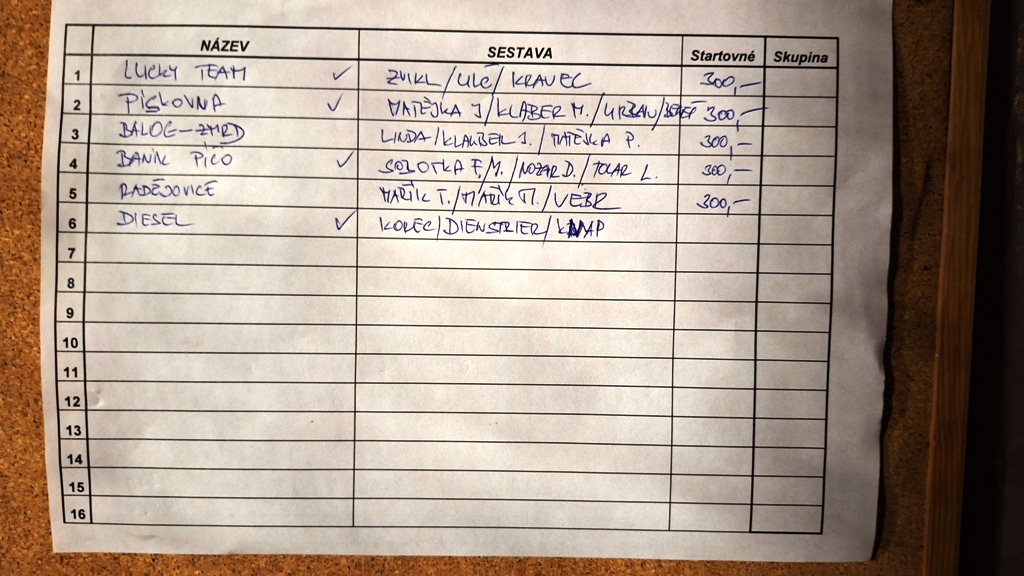 NÁZEV SESTAVA Startovné Skupina
1 LUCKY TEAM ✓ ZVIKL/ULČ/KRAVEC 300,-
2 PÍSKOVNA ✓ MATĚJKA J/KLABER M./URBAN/ 300,-
3 BALOG-ZMRD LINDA/KLAUBER J./MATĚJKA P. 300,-
4 BANÍK PÍČO ✓ SOBOTKA F./M./NOZAR D./TOLAR L. 300,-
5 RADĚJOVICE MAŘÍK T./MAŘÍK M./VEBR 300,-
6 DIESEL ✓ KOREC/DIENSTBIER/KNAP
7
8
9
10
11
12
13
14
15
16